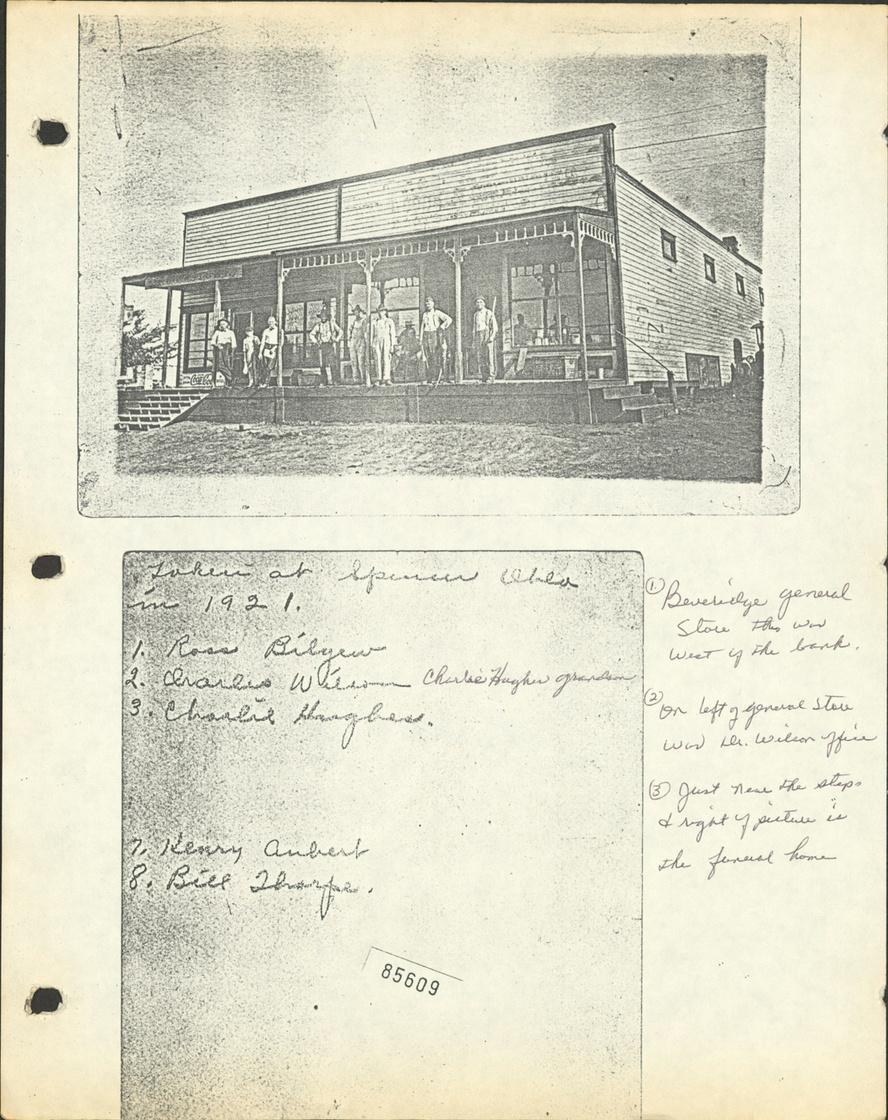 Coca-Cola
Taken at Spencer Okla
in 1921.
1. Ross Bilyew
2. Charles Wilson Charlie Hughes grandson
3. Charlie Hughes.
7. Henry Aubert
8. Bill Tharpe.
85609
① Beveridge general
Store this was
West of the bank.
② On left of general Store
was Dr. Wilson office
③ Just near the steps
& right of picture is
the funeral home